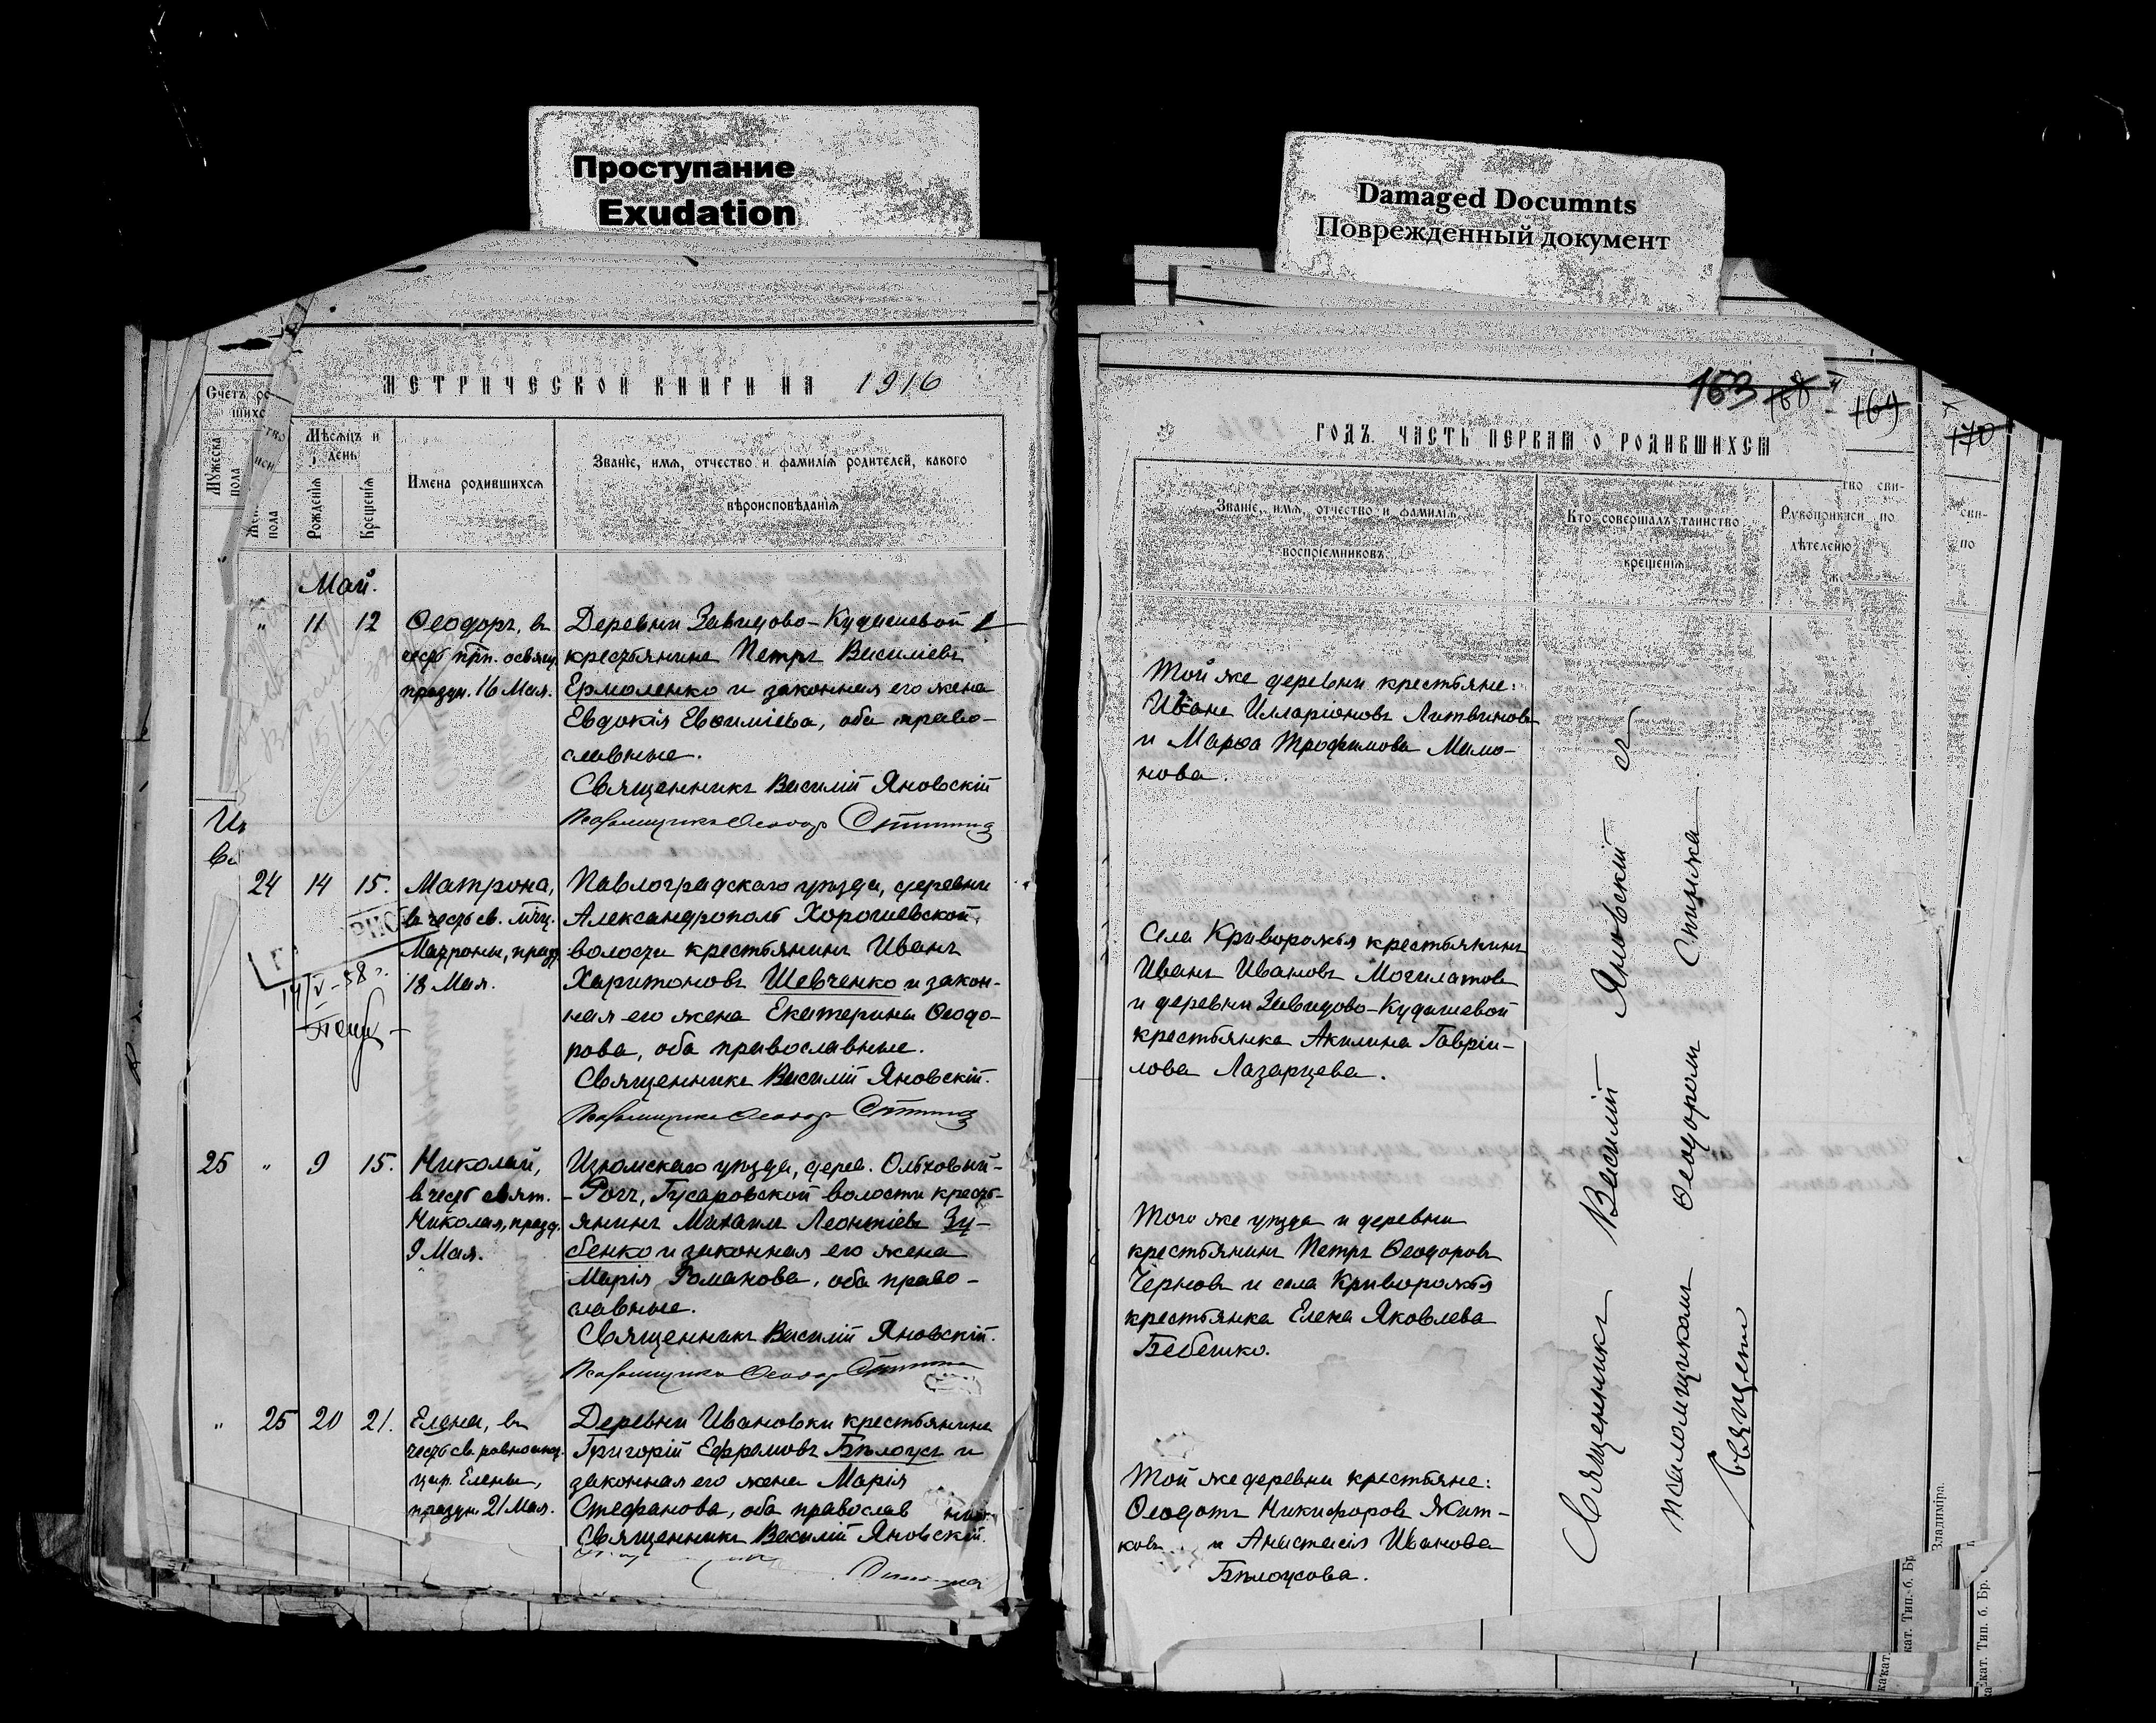 Проступание
Exudation
Damaged Documnts
Поврежденный документ
МЕТРИЧЕСКОЙ КНИГИ НА 1916
Мужеска пола
пола
Мѣсяцъ и день
Рожденія
Крещенія
Имена родившихся
Званіе, имя, отчество и фамилія родителей, какого
вѣроисповѣданія
Май.
" 11 12
Ѳеодоръ, въ
честь прп. освящ.
праздн. 16 Мая.
Деревни Завидово-Кудашевой
крестьянинъ Петръ Василіевъ
Ермоленко и законная его жена
Евдокія Евѳиміева, оба право-
славные.
Священникъ Василій Яновскій
Псаломщикъ Ѳеодор
24 14 15.
Матрона,
въ честь св. мчц.
Матроны, празд.
18 Мая.
14/V-58 г.
Павлоградскаго уѣзда, деревни
Александрополь Хорошевской
волости крестьянинъ Иванъ
Харитоновъ Шевченко и закон-
ная его жена Екатерина Ѳеодо-
рова, оба православные.
Священникъ Василій Яновскій.
Псаломщикъ Ѳеодор
25 " 9 15.
Николай,
въ честь свят.
Николая, празд.
9 Мая.
Изюмскаго уѣзда, дерев. Ольховый-
-Рогъ, Гусаровской волости кресть-
янинъ Михаилъ Леонтіевъ Зу-
бенко и законная его жена
Марія Романова, оба право-
славные.
Священникъ Василій Яновскій.
Псаломщикъ Ѳеодор
" 25 20 21.
Елена, въ
честь св. равноап.
цар. Елены,
праздн. 21 Мая.
Деревни Ивановки крестьянинъ
Григорій Ефремовъ Бѣлоусъ и
законная его жена Марія
Стефанова, оба православ
Священникъ Василій Яновскій.
163 168 169 170
ГОДЪ. ЧАСТЬ ПЕРВАЯ О РОДИВШИХСЯ
Званіе, имя, отчество и фамилія
воспріемниковъ.
Кто совершалъ таинство
крещенія
Рукоприкла
тво сви-
по
дѣтелей
Той же деревни крестьяне:
Иванъ Илларіоновъ Литвиновъ
и Марѳа Трофимова Мамо-
нова.
Села Криворожья крестьянинъ
Иванъ Ивановъ Могилатовъ
и деревни Завидово-Кудашевой
крестьянка Акилина Гаврiи-
лова Лазарцева.
Того же уѣзда и деревни
крестьянинъ Петръ Ѳеодоровъ
Черновъ и села Криворожья
крестьянка Елена Яковлева
Бебешко.
Той же деревни крестьяне:
Ѳеодотъ Никифоровъ Жит-
ковъ и Анастасія Иванова
Бѣлоусова.
Священникъ Василій Яновскій съ
псаломщикомъ Ѳеодоромъ